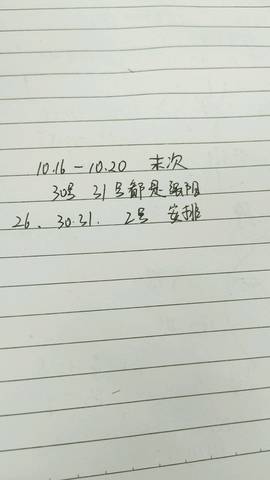 10.16-10.20 末次
30号 31号都是强阳
26、30.31. 2号 安排